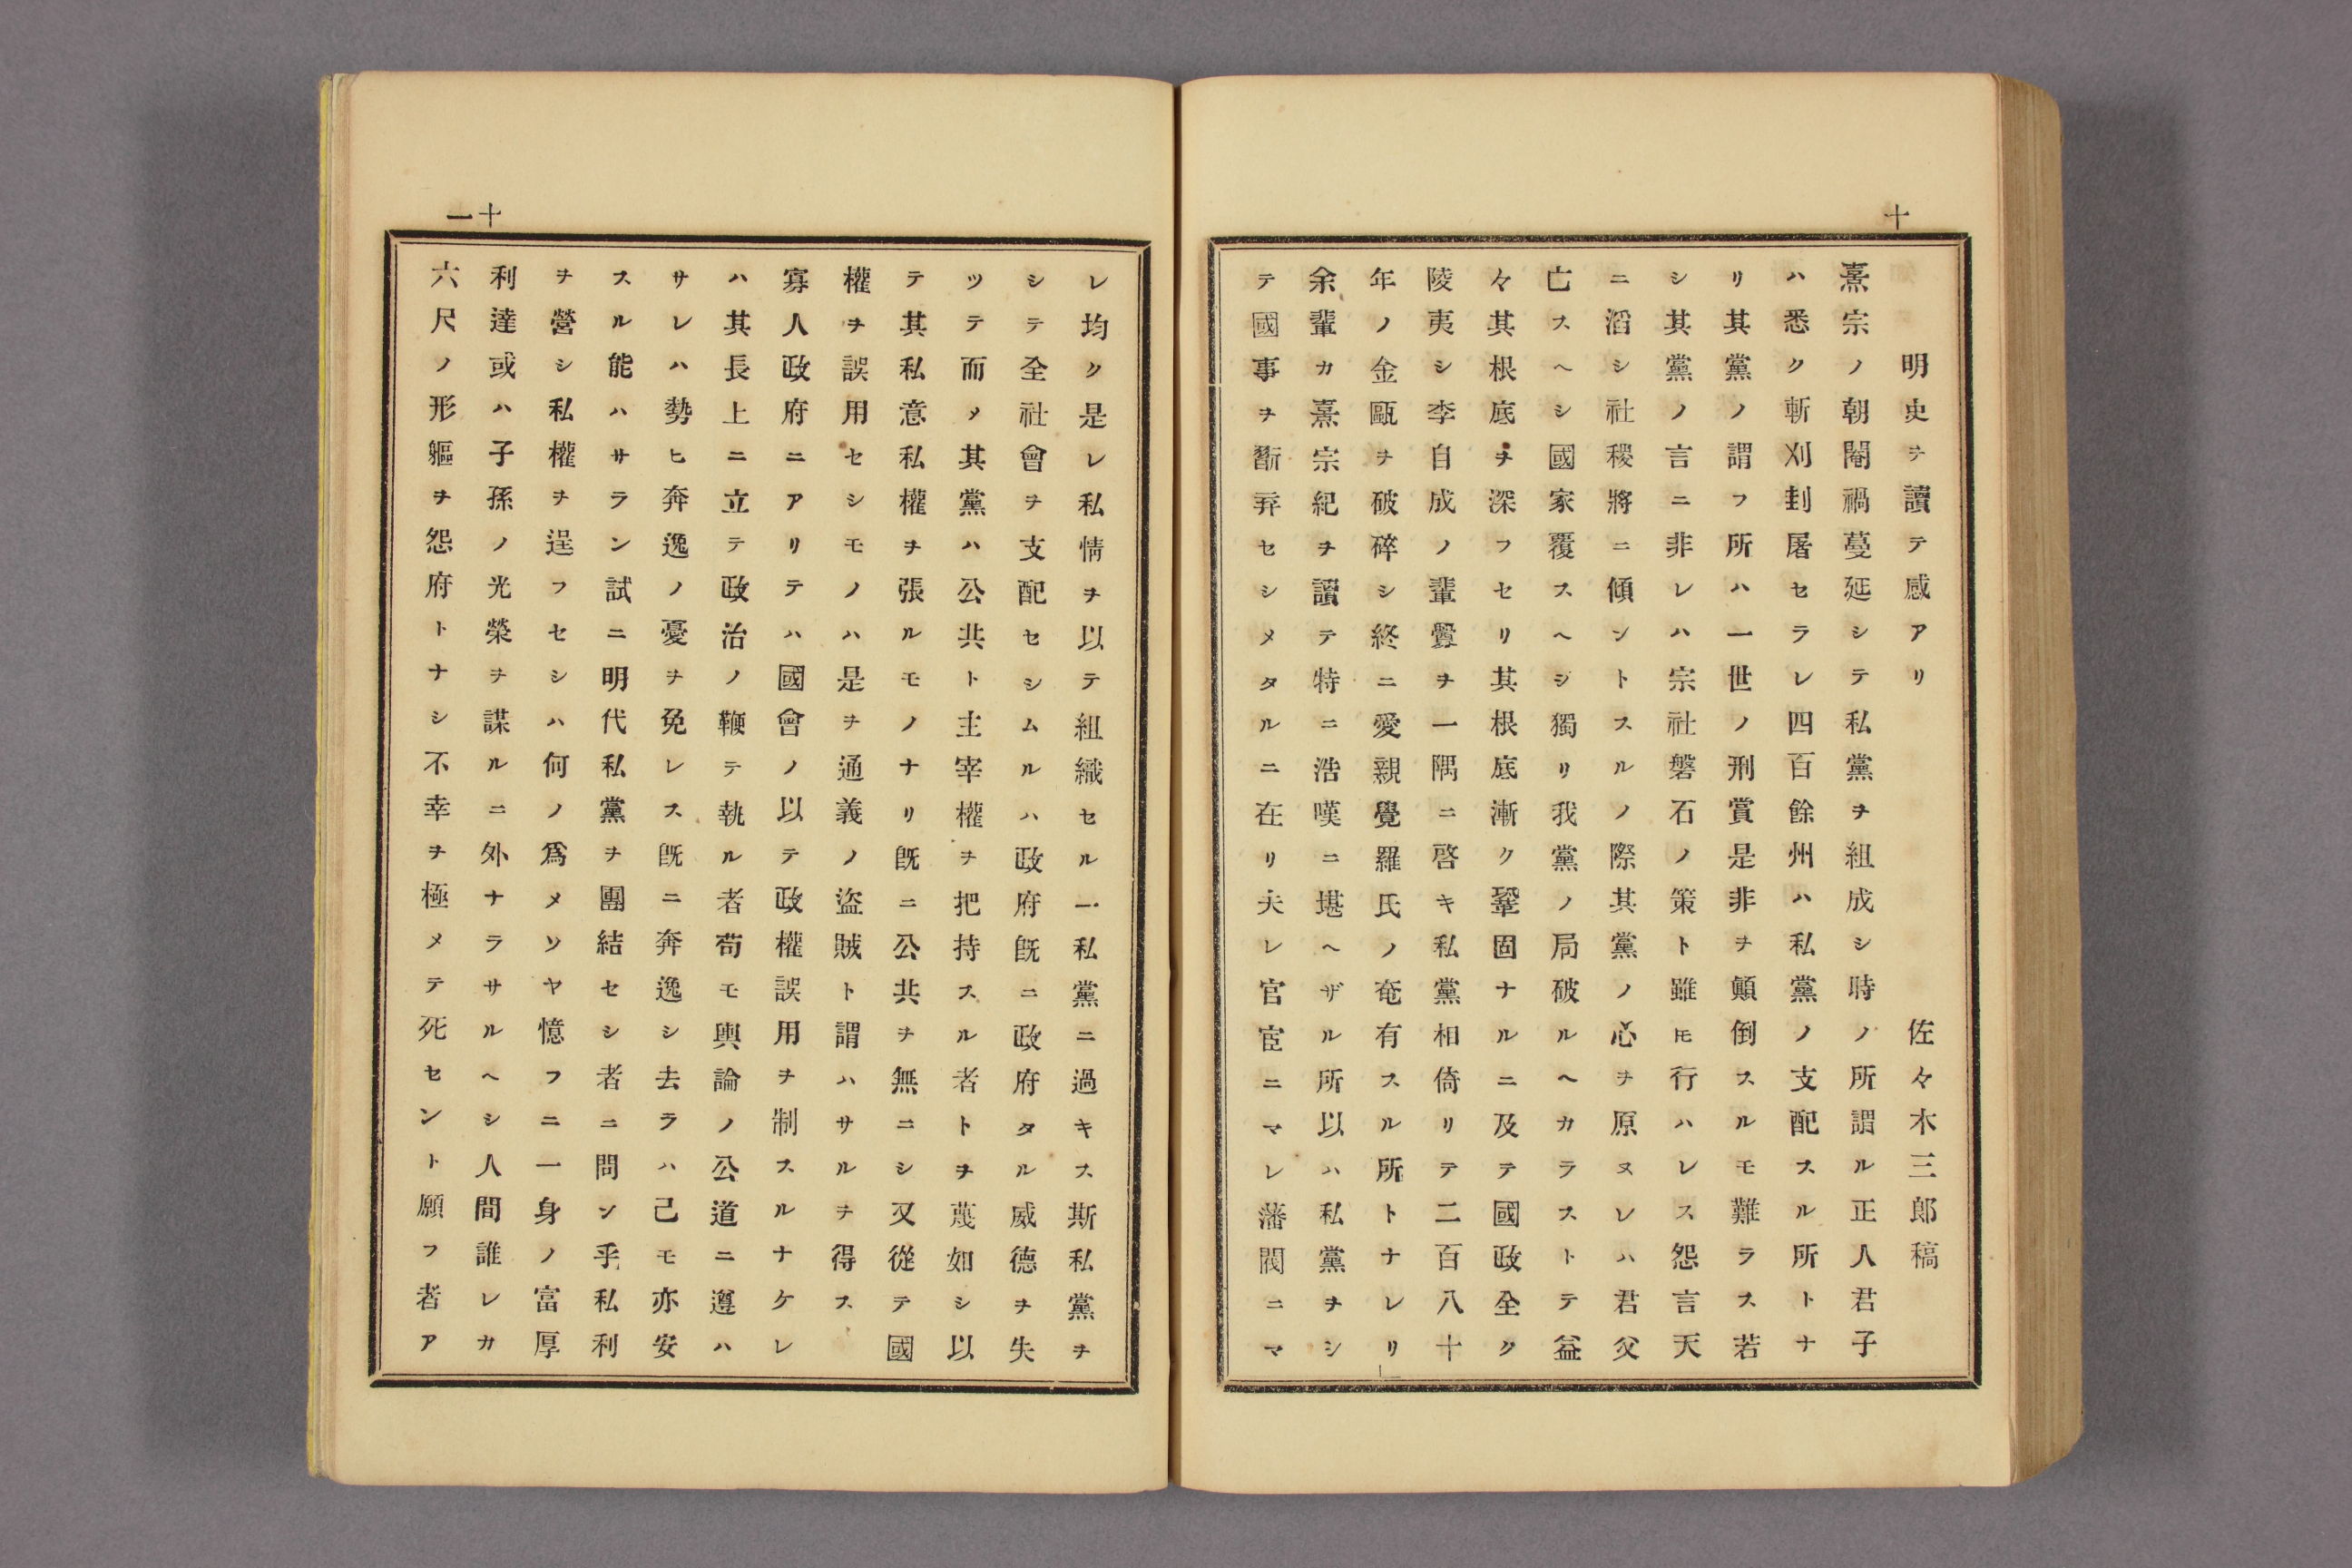 十
明史ヲ讀テ感アリ　佐々木三郎稿
熹宗ノ朝閹禍蔓延シテ私黨ヲ組成シ時ノ所謂ル正人君子
ハ悉ク斬刈刲屠セラレ四百餘州ハ私黨ノ支配スル所トナ
リ其黨ノ謂フ所ハ一世ノ刑賞是非ヲ顚倒スルモ難ラス若
シ其黨ノ言ニ非レハ宗社磐石ノ策ト雖𪜈行ハレス怨言天
ニ滔シ社稷將ニ傾ントスルノ際其黨ノ心ヲ原ヌレハ君父
亡スヘシ國家覆スヘシ獨リ我黨ノ局破ルヘカラストテ益
々其根底ヲ深フセリ其根底漸ク鞏固ナルニ及テ國政全ク
陵夷シ李自成ノ輩釁ヲ一隅ニ啓キ私黨相倚リテ二百八十
年ノ金甌ヲ破碎シ終ニ愛親覺羅氏ノ奄有スル所トナレリ
余輩カ熹宗紀ヲ讀テ特ニ浩嘆ニ堪ヘザル所以ハ私黨ヲシ
テ國事ヲ斷弄セシメタルニ在リ夫レ官宦ニマレ藩閥ニマ
十一
レ均ク是レ私情ヲ以テ組織セル一私黨ニ過キス斯私黨ヲ
シテ全社會ヲ支配セシムルハ政府既ニ政府タル威德ヲ失
ツテ而メ其黨ハ公共ト主宰權ヲ把持スル者トヲ蔑如シ以
テ其私意私權ヲ張ルモノナリ既ニ公共ヲ無ニシ又從テ國
權ヲ誤用セシモノハ是ヲ通義ノ盜賊ト謂ハサルヲ得ス
寡人政府ニアリテハ國會ノ以テ政權誤用ヲ制スルナケレ
ハ其長上ニ立テ政治ノ鞭テ執ル者苟モ輿論ノ公道ニ遵ハ
サレハ勢ヒ奔逸ノ憂ヲ免レス既ニ奔逸シ去ラハ己モ亦安
スル能ハサラン試ニ明代私黨ヲ團結セシ者ニ問ン乎私利
ヲ營シ私權ヲ逞フセシハ何ノ爲メソヤ憶フニ一身ノ富厚
利達或ハ子孫ノ光榮ヲ謀ルニ外ナラサルヘシ人間誰レカ
六尺ノ形軀ヲ怨府トナシ不幸ヲ極メテ死セント願フ者ア